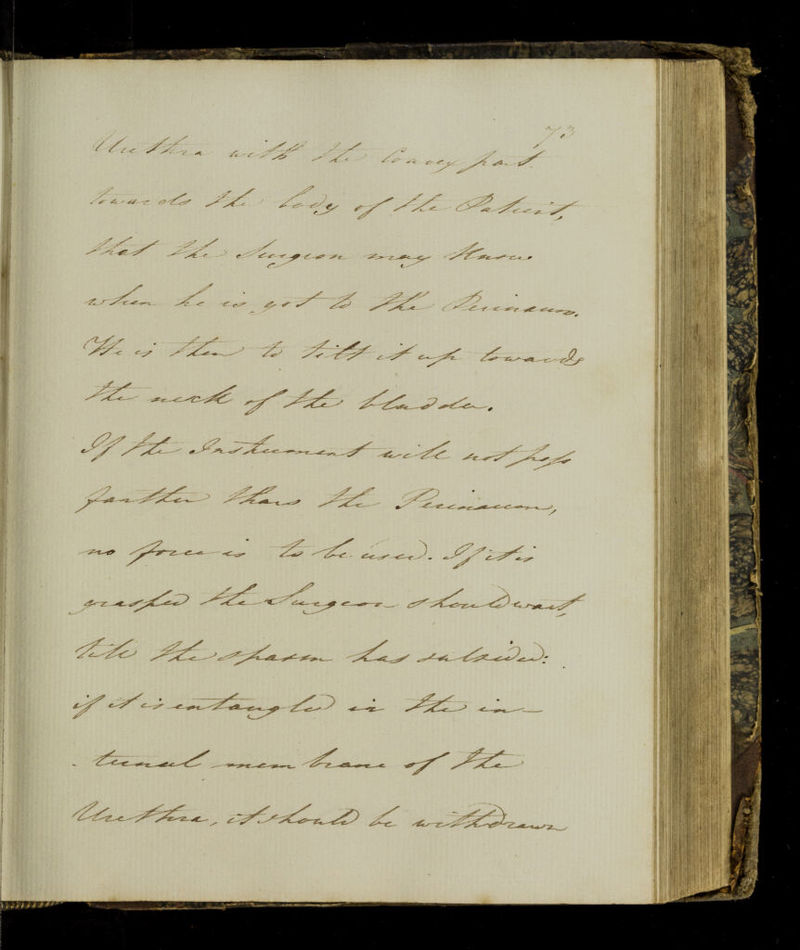 73
Urethra with the Convex part
towards the body of the Patient,
that the Surgeon may know
when he is got to the Perinaum.
He is then to tilt it up towards
the neck of the bladder.
If the Instrument will not pass
farther than the Perinaeum,
no force is to be used. If it is
grasped the Surgeon should wait,
till the spasm has subsided:
if it is entangled in the in-
-ternal membrane of the
Urethra, it should be withdrawn